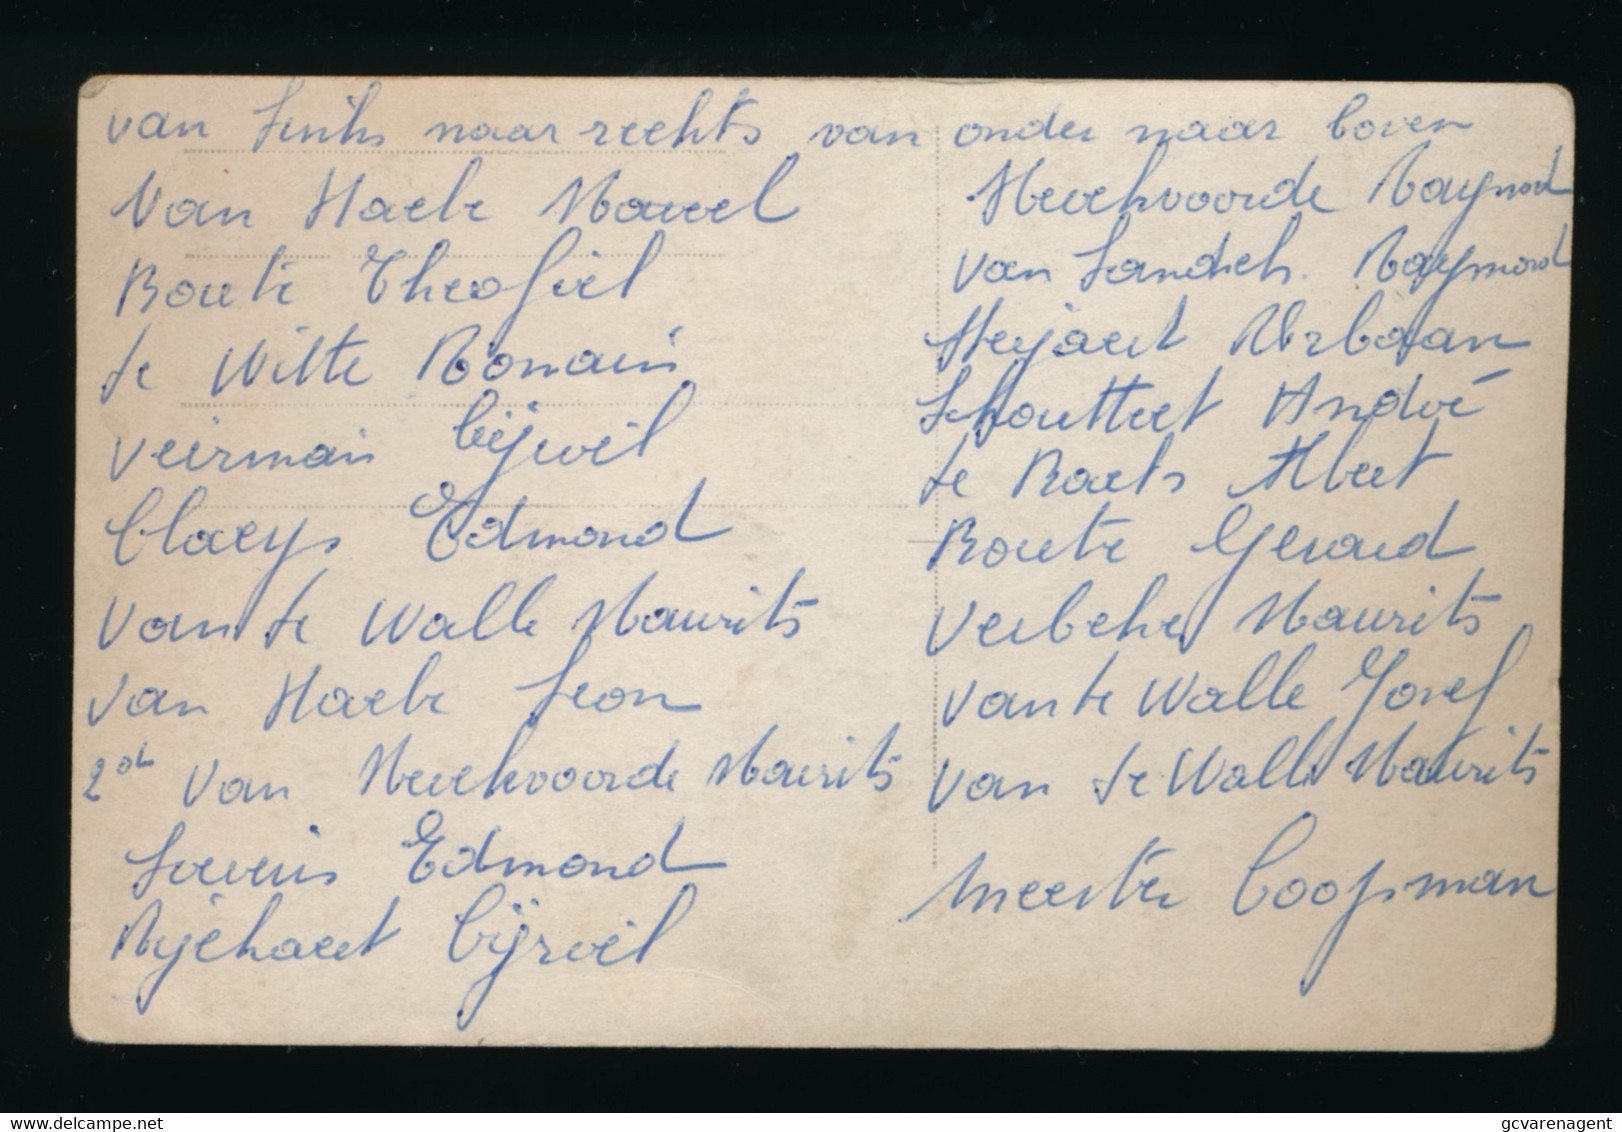 van links naar rechts van onder naar boven
Van Haele Marcel
Boute Theofiel
de Witte Romain
Veirman Cijriel
Claeys Edmond
Van de Walle Maurits
Van Haele Leon
2de Van Kerckvoorde Maurits
Edmond
Rijckaert Cijriel
Kerckvoorde Raymond
Van Landsch. Raymond
Urbaan
Schoutteet André
de Baets Albert
Boute Gerard
Verbeke Maurits
Van de Walle Jozef
Van de Walle Maurits
Meester Coopman
delcampe.net
gcvarenagent